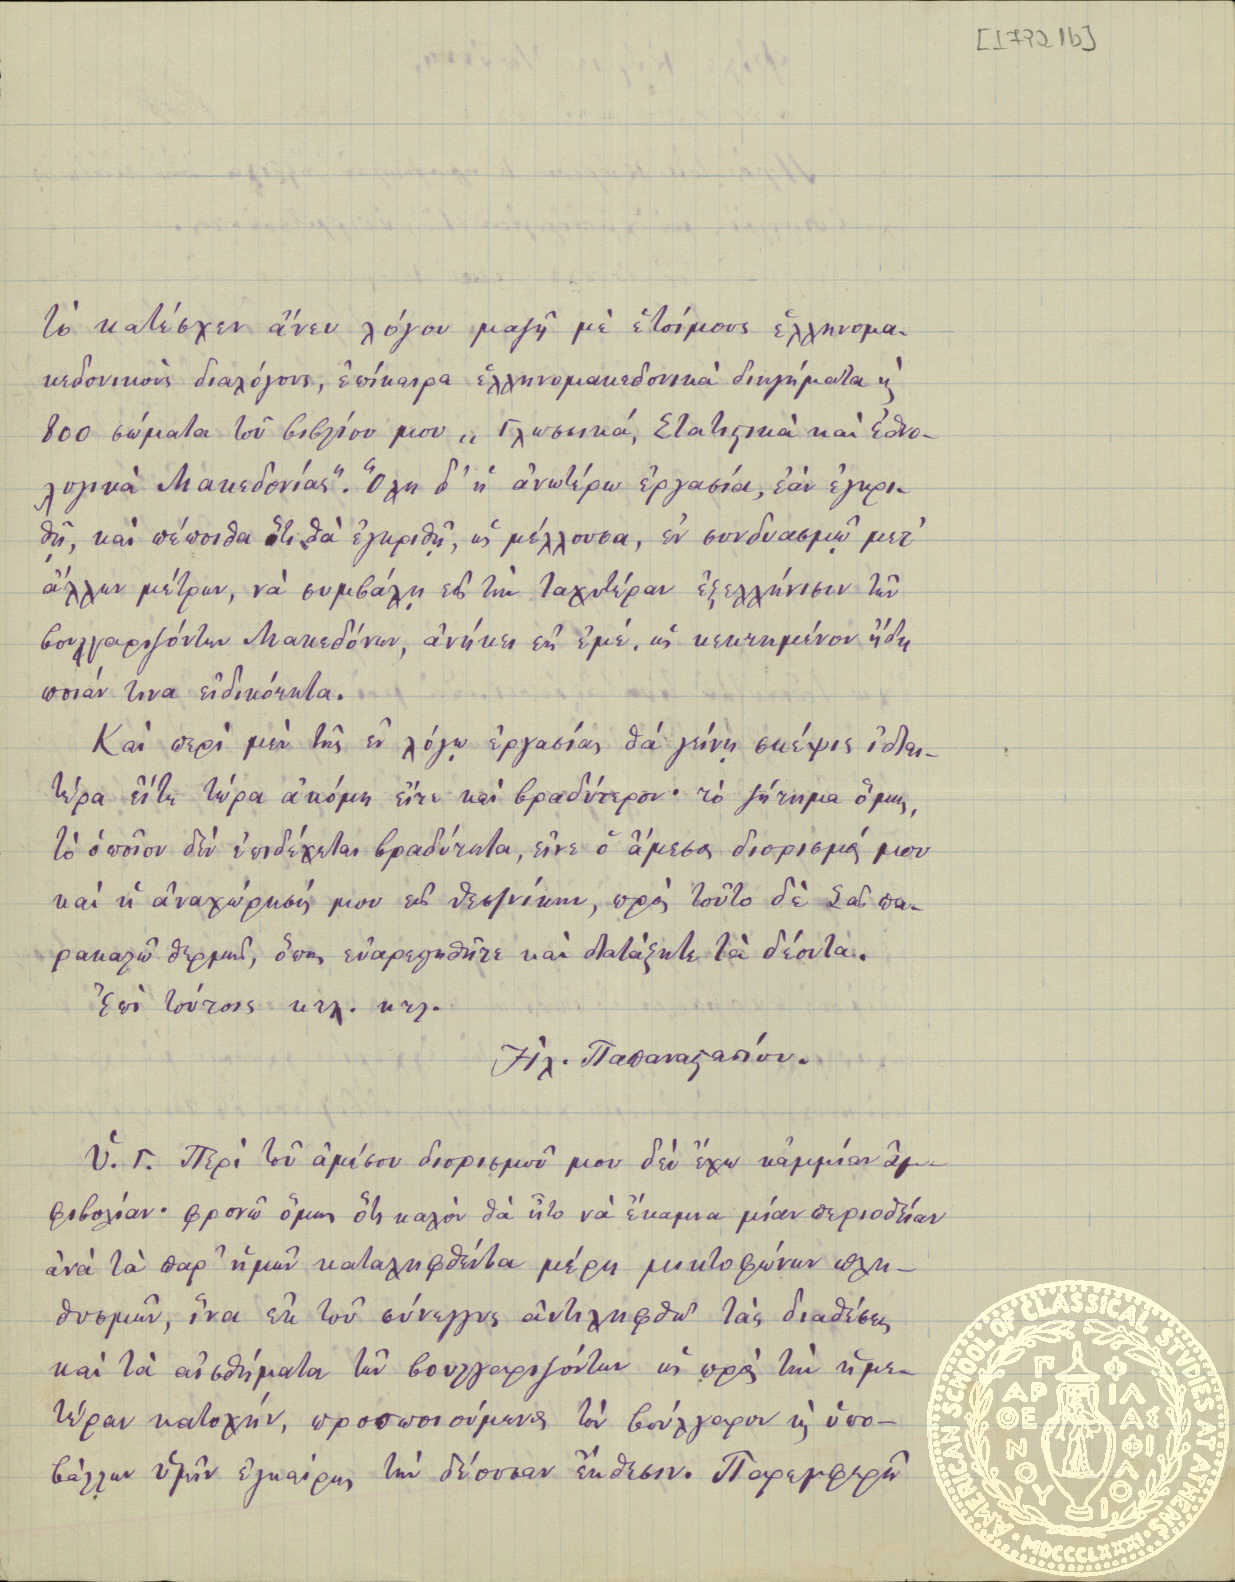 [1792 1b]
τὸ κατέσχεν ἄνευ λόγου μαζῆ μὲ ἑτοίμους ἑλληνομα-
κεδονικοὺς διαλόγους, ἐπίκαιρα ἑλληνομακεδονικὰ διηγήματα κ̀
800 σώματα τοῦ βιβλίου μου „Γλωσσικά, Στατιστικὰ καὶ ἐθνο-
λογικὰ Μακεδονίας". Ὅλη δ' ἡ ἀνωτέρω ἐργασία, ἐὰν ἐγκρι-
θῇ, καὶ πέποιθα ὅτι θὰ ἐγκριθῇ, ὡς μέλλουσα, ἐν συνδυασμῷ μετ'
ἄλλων μέτρων, νὰ συμβάλῃ εἰς τὴν ταχυτέραν ἐξελλήνισιν τῶν
βουλγαριζόντων Μακεδόνων, ἀνήκει εἰς ἐμέ, ὡς κεκτημένον ἤδη
ποιάν τινα εἰδικότητα.
Καὶ περὶ μὲν τῆς ἐν λόγῳ ἐργασίας θὰ γείνῃ σκέψις ἰδιαι-
τέρα εἴτε τώρα ἀκόμη εἴτε καὶ βραδύτερον· τὸ ζήτημα ὅμως,
τὸ ὁποῖον δὲν ἐπιδέχεται βραδύτητα, εἶνε ὁ ἄμεσος διορισμός μου
καὶ ἡ ἀναχώρησίς μου εἰς Θεσ)νίκην, πρὸς τοῦτο δὲ Σᾶς πα-
ρακαλῶ θερμῶς, ὅπως εὐαρεστηθῆτε καὶ διατάξητε τὰ δέοντα.
Ἐπὶ τούτοις κτλ. κτλ.
Ἠλ. Παπαναστασίου.
Ὑ. Γ. Περὶ τοῦ ἀμέσου διορισμοῦ μου δὲν ἔχω κἀμμίαν ἀμ-
φιβολίαν· φρονῶ ὅμως ὅτι καλὸν θὰ ἦτο νὰ ἔκαμνα μίαν περιοδείαν
ἀνὰ τὰ παρ' ἡμῶν καταληφθέντα μέρη μικτοφώνων πλη-
θυσμῶν, ἵνα ἐκ τοῦ σύνεγγυς ἀντιληφθῶ τὰς διαθέσεις
καὶ τὰ αἰσθήματα τῶν βουλγαριζόντων ὡς πρὸς τὴν ἡμε-
τέραν κατοχήν, προσποιούμενος τὸν βούλγαρον κ̀ ὑπο-
βάλλων ὑμῖν ἐγκαίρως τὴν δέουσαν ἔκθεσιν. Παρεμφερῆ
AMERICAN SCHOOL OF CLASSICAL STUDIES AT ATHENS
MDCCCLXXXI
ΠΑΡΘΕΝΟΥ ΦΙΛΑΣ ΦΙΛΟΙ